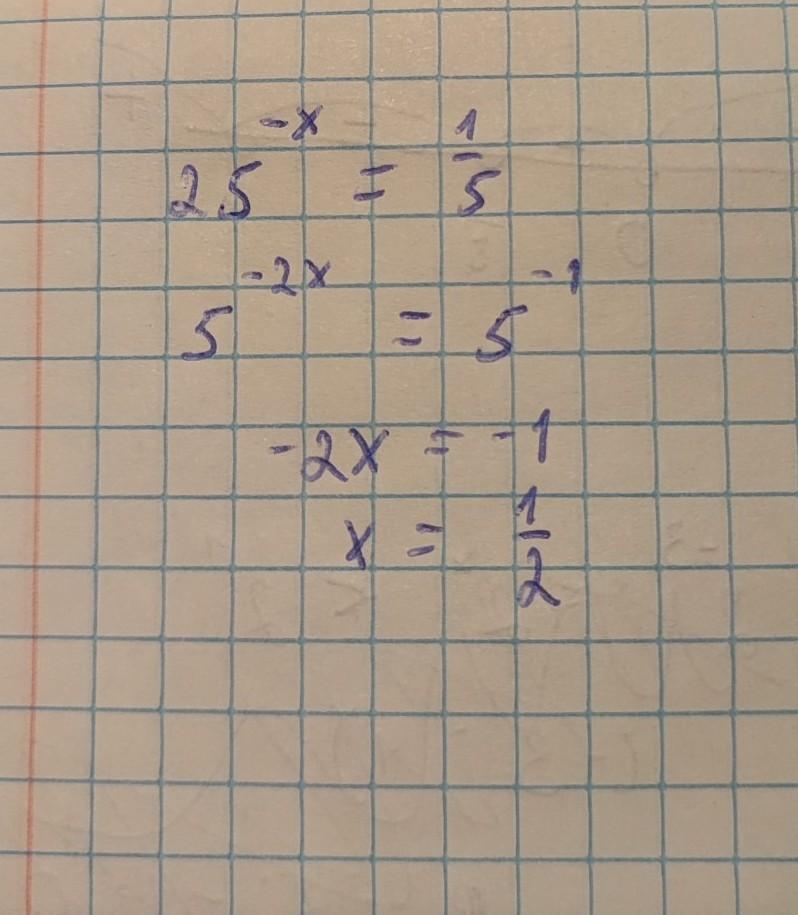 25^{-x} = \frac{1}{5}
5^{-2x} = 5^{-1}
-2x = -1
x = \frac{1}{2}